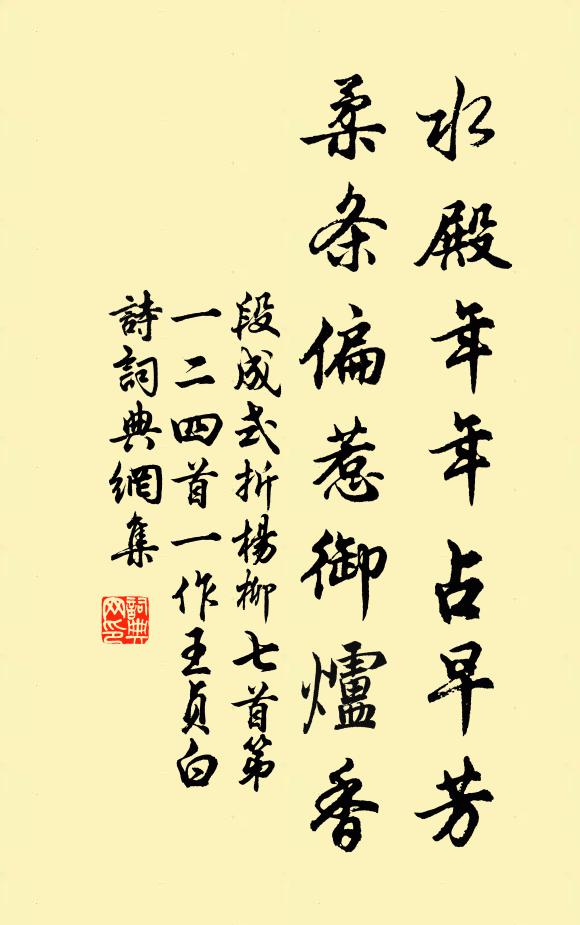 水殿年年占早芳
柔条偏惹御爐香
段成式折楊柳七首第
一二四首一作王貞白
詩詞典網集
詞典网印